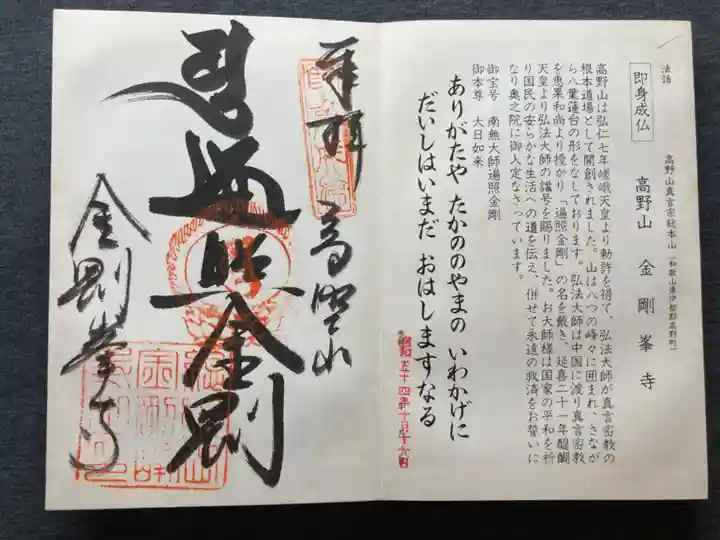 法語
高野山真言宗総本山（和歌山県伊都郡高野町）
即身成仏
高野山 金剛峯寺
高野山は弘仁七年嵯峨天皇より勅許を得て、弘法大師が真言密教の
根本道場として開創されました。山は八つの峰々に囲まれ、さなが
ら八葉蓮台の形をなしております。弘法大師は中国に渡り真言密教
を恵果和尚より授かり「遍照金剛」の名を戴き、延喜二十一年醍醐
天皇より弘法大師の諡号を賜りました。お大師様は国家の平和を祈
り国民の安らかな生活への道を伝え、併せて永遠の救済をお誓いに
なり奥之院に御入定なさっています。
御宝号 南無大師遍照金剛
御本尊 大日如来
ありがたや たかののやまの いわかげに
だいしはいまだ おはしますなる
奉拝 高野山
遍照金剛
金剛峯寺